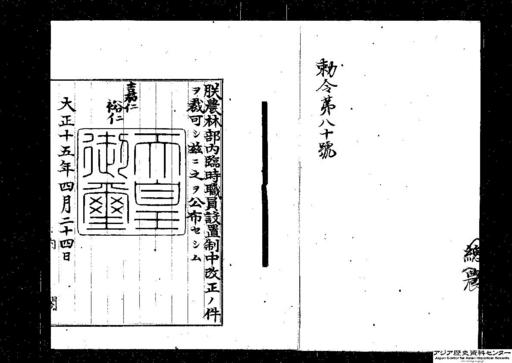 勅令第八十號
總農
朕農林部内臨時職員設置制中改正ノ件
ヲ裁可シ玆ニ之ヲ公布セシム
嘉仁
裕仁
天皇
御璽
大正十五年四月二十四日
アジア歴史資料センター
Japan Center for Asian Historical Records